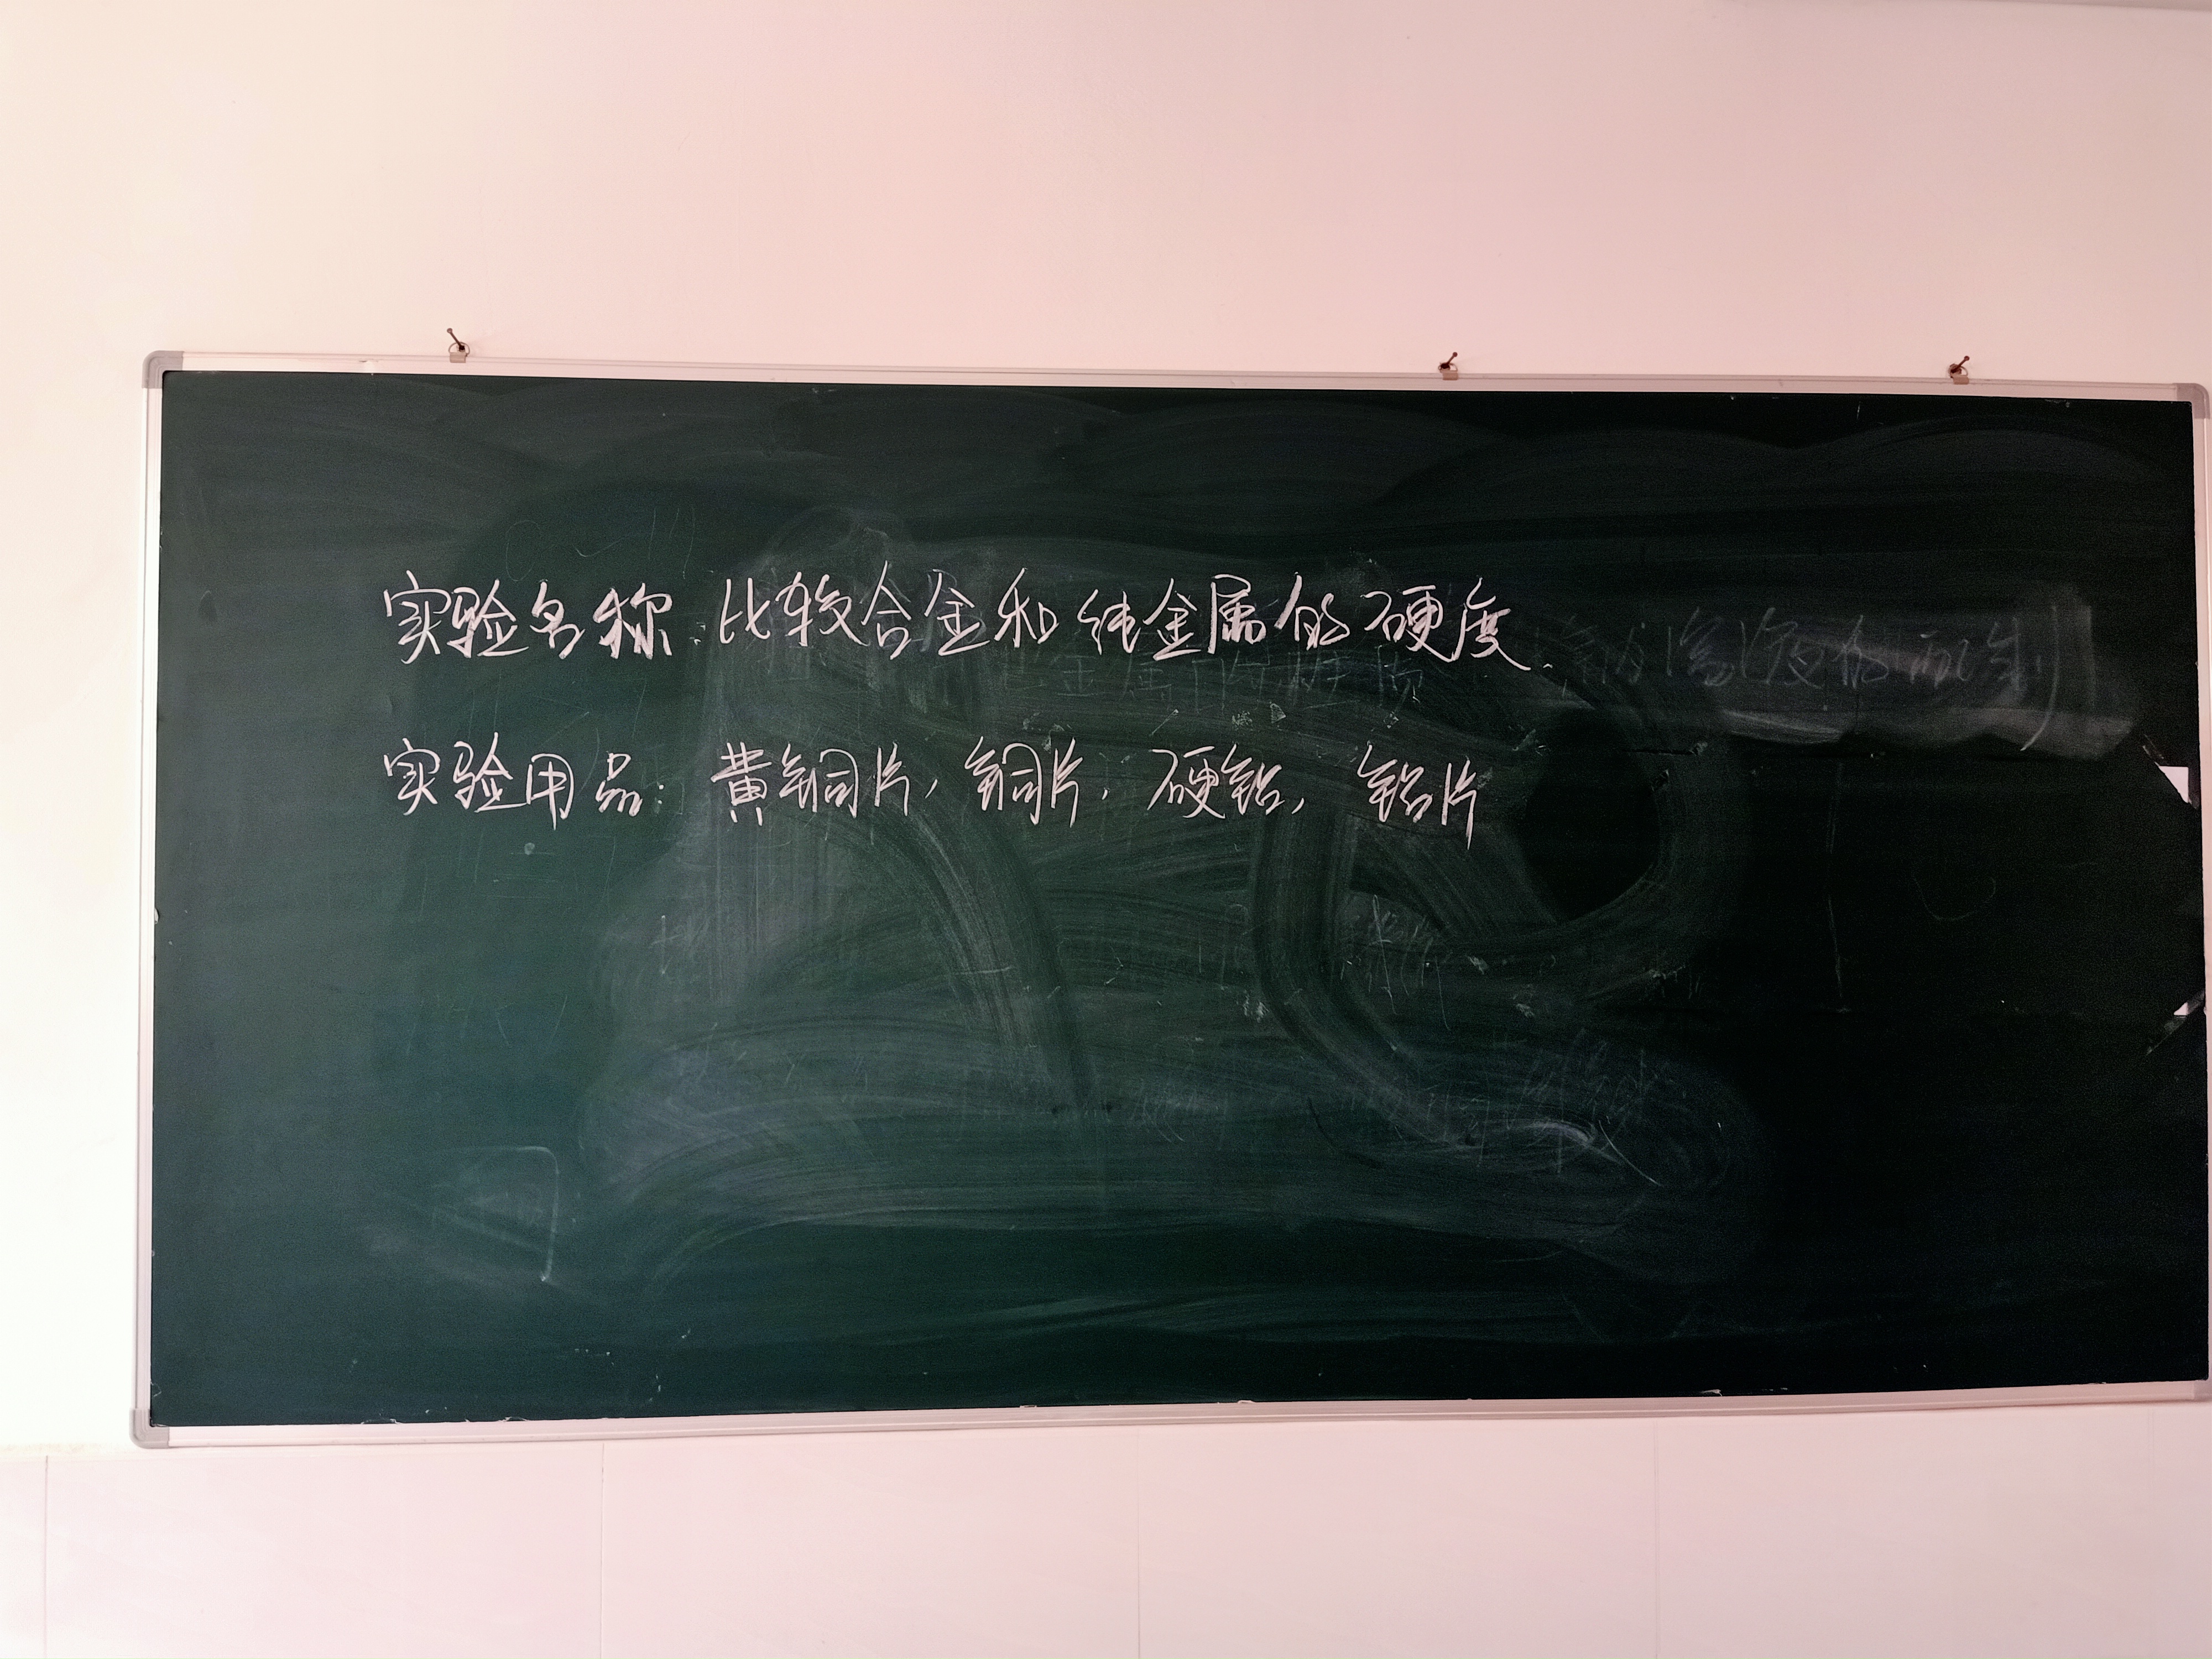 实验名称:比较合金和纯金属的硬度.
实验用品:黄铜片,铜片,硬铝,铝片